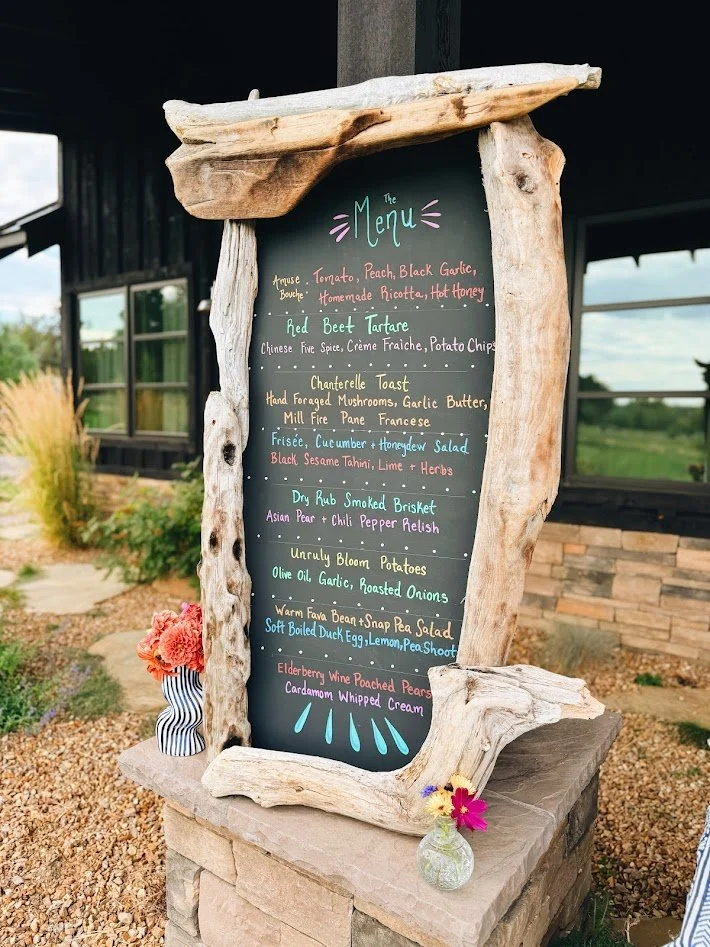 The
Menu
Amuse Bouche · Tomato, Peach, Black Garlic,
Homemade Ricotta, Hot Honey
Red Beet Tartare
Chinese Five Spice, Crème Fraiche, Potato Chips
Chanterelle Toast
Hand Foraged Mushrooms, Garlic Butter,
Mill Fire Pane Francese
Friseé, Cucumber + Honeydew Salad
Black Sesame Tahini, Lime + Herbs
Dry Rub Smoked Brisket
Asian Pear + Chili Pepper Relish
Unruly Bloom Potatoes
Olive Oil, Garlic, Roasted Onions
Warm Fava Bean + Snap Pea Salad
Soft Boiled Duck Egg, Lemon, Pea Shoot
Elderberry Wine Poached Pears
Cardamom Whipped Cream